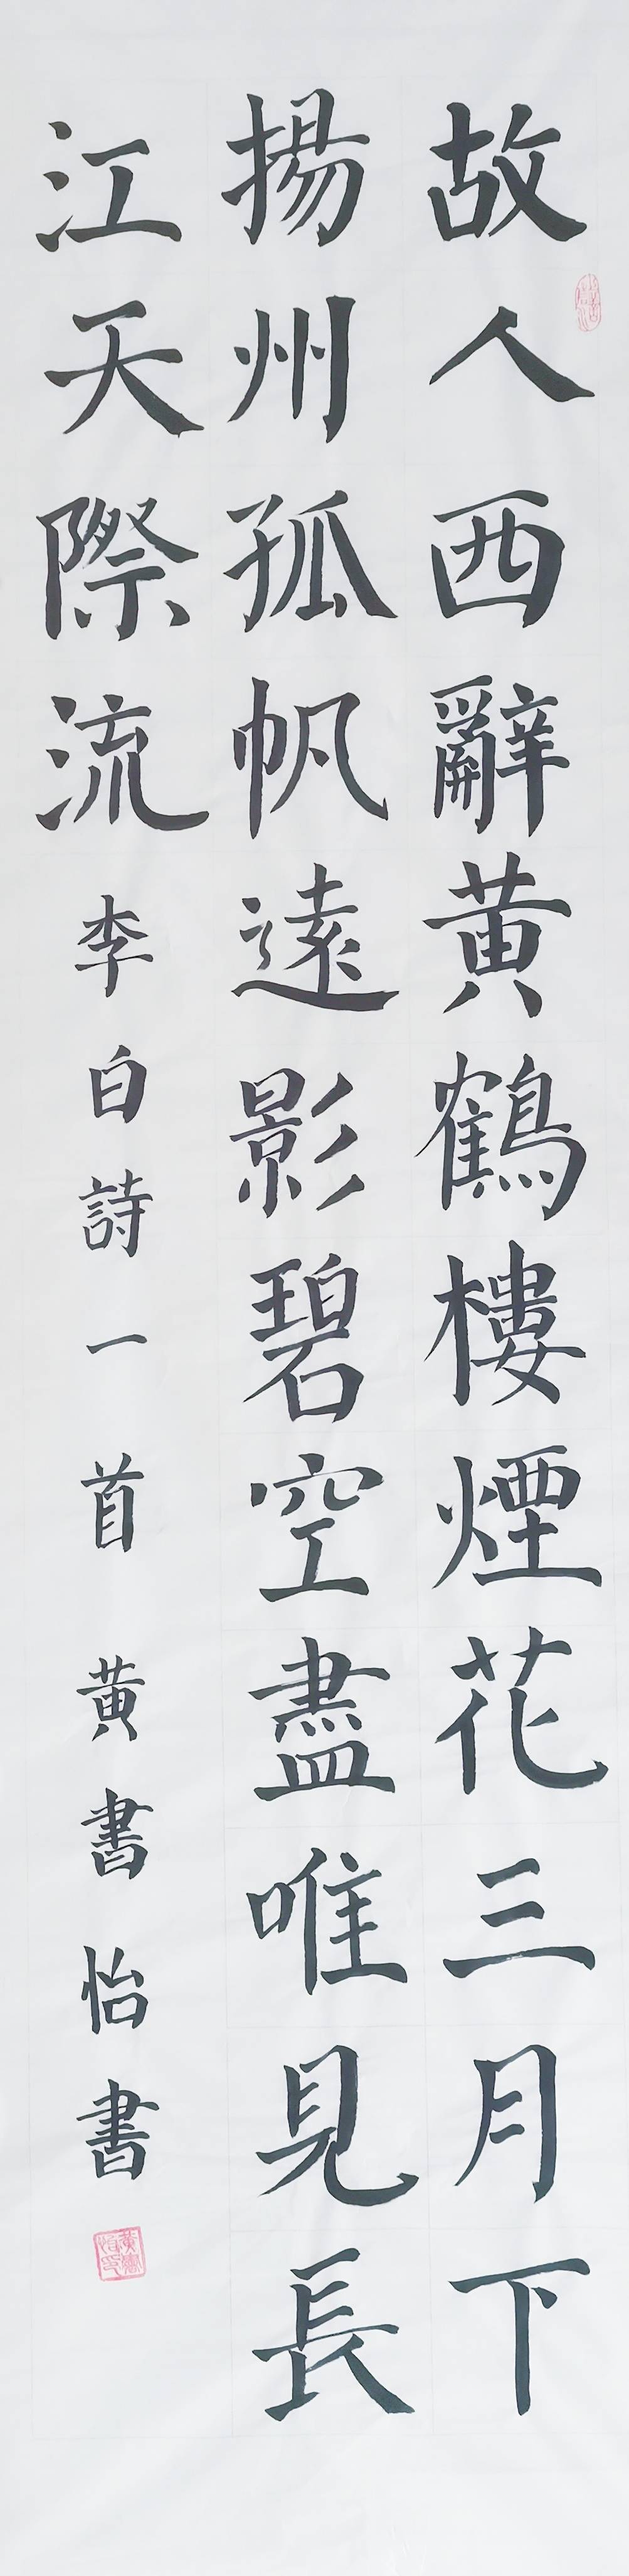 故人西辭黄鶴樓煙花三月下
揚州孤帆遠影碧空盡唯見長
江天際流李白詩一首黄書怡書